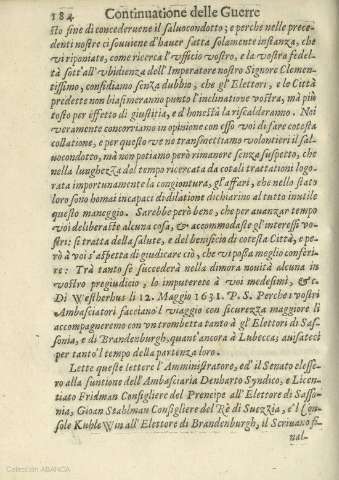 184 Continuatione delle Guerre
sto fine di concederuene il saluocondotto; e perche nelle prece-
denti nostre ci souuiene d'hauer fatta solamente instanza, che
vi riponiate, come ricerca l'vfficio vostro, e la vostra fedel-
tà sott'all'vbidienza dell'Imperatore nostro Signore Clemen-
tissimo, confidiamo senza dubbio, che gl'Elettori, e le Città
predette non biasimeranno punto l'inclinatione vostra, mà più
tosto per effetto di giustitia, e d'honestà la riscalderanno. Noi
veramente concorriamo in opinione con esso voi di fare cotesta
collatione, e per questo ve ne transmettiamo volontieri il sal-
uocondotto, mà non potiamo però rimanere senza suspetto, che
nella lunghezza del tempo ricercata da cotali trattationi logo-
rata importunamente la congiontura, gl'affari, che nello stato
loro sono homai incapaci di dilatione dichiarino al tutto inutile
questo maneggio. Sarebbe però bene, che per auanzar tempo
voi deliberaste alcuna cosa, & accommodaste gl'interessi vo-
stri: si tratta della salute, e del beneficio di cotesta Città, e pe-
rò à voi s'aspetta di giudicare ciò, che vi possa meglio conferi-
re: Trà tanto se succederà nella dimora nouità alcuna in
vostro pregiudicio, lo imputerete à voi medesimi, &c.
Di Westherhus li 12. Maggio 1631. P. S. Perche i vostri
Ambasciatori facciano'l viaggio con sicurezza maggiore li
accompagneremo con vn trombetta tanto à gl'Elettori di Sas-
sonia, e di Brandenburgh, quant'ancora à Lubecca; auisateci
per tanto'l tempo della partenza loro.
Lette queste lettere l'Amministratore, ed'il Senato elesse-
ro alla funtione dell'Ambasciaria Denharto Syndico, e Licen-
tiato Fridman Consigliere del Prencipe all'Elettore di Sasso-
nia, Gioan Stahlman Consigliere del Rè di Suezzia, e'l Con-
sole Kuhle Win all'Elettore di Brandenburgh, il Scriuano fi-
nal-
Colección ABANCA